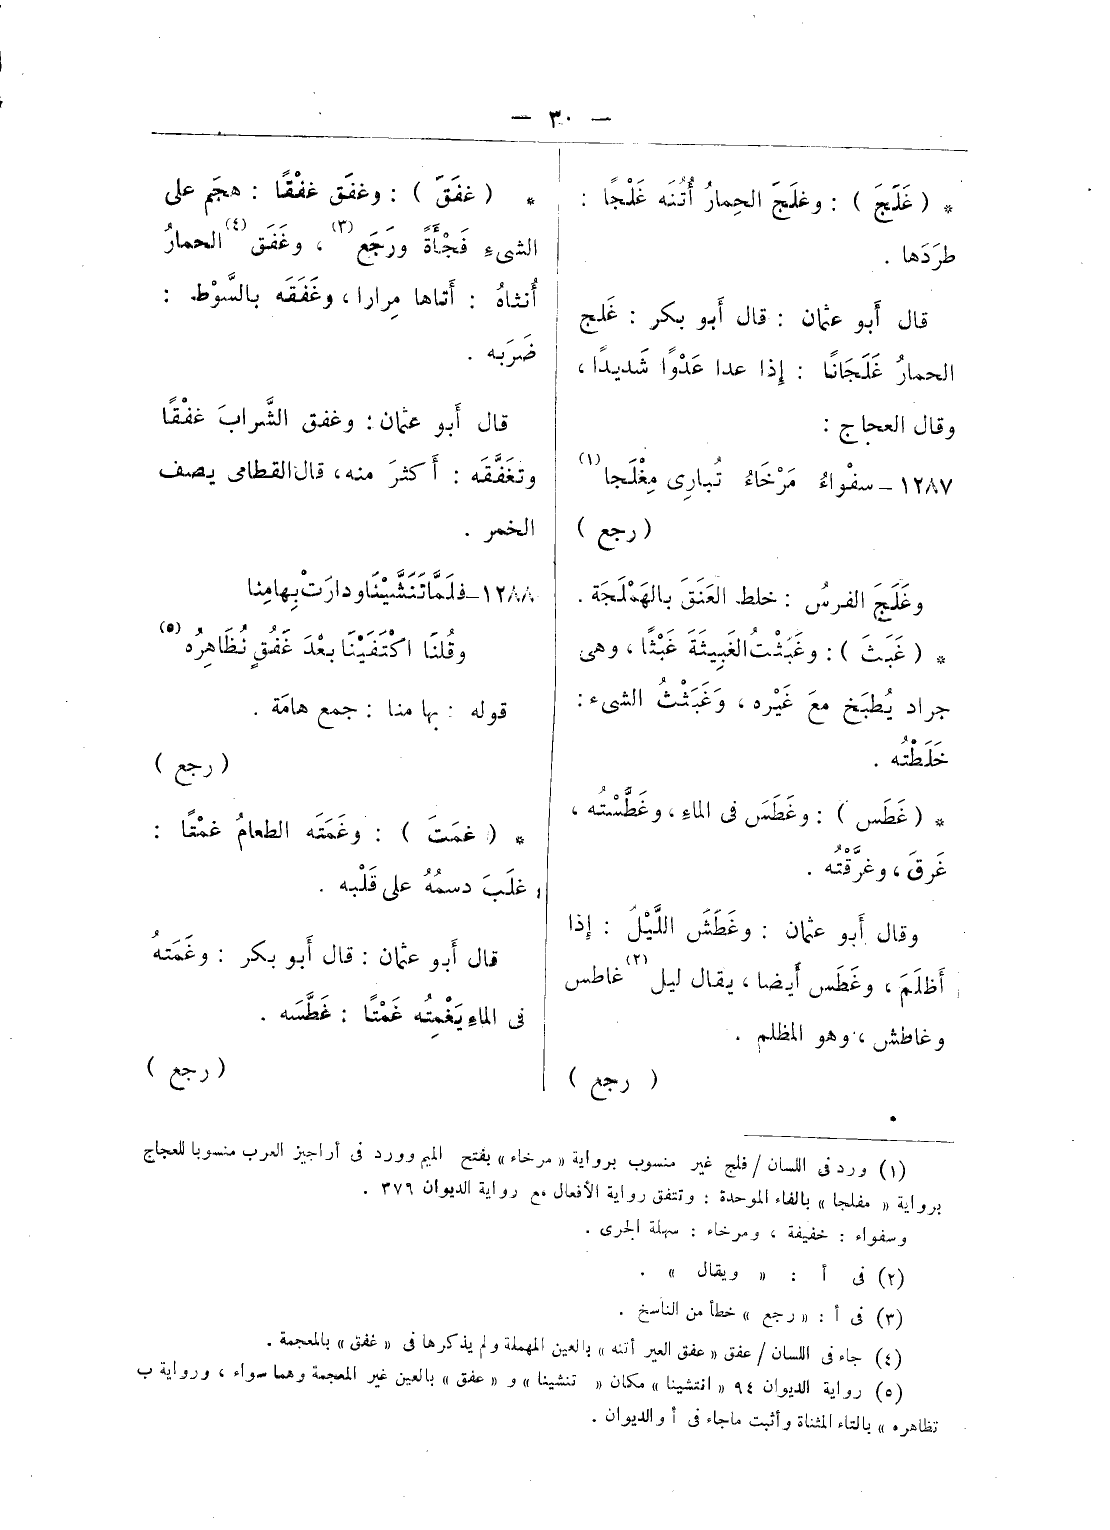 — ٣٠ —
* ( غَلَجَ ) : وغلَجَ الحِمارُ أُتُنَه غَلْجًا :
طرَدَها .
قال أَبو عثمان : قال أَبو بكر : غَلَج
الحمارُ غَلَجَانًا : إِذا عدا عَدْوًا شَديدًا ،
وقال العجاج :
١٢٨٧ – سفْواءُ مَرْخَاءُ تُبارِى مِغْلَجا (١)
( رجع )
وغَلَجَ الفرسُ : خلط العَنَقَ بالهَمْلَجَة .
* ( غَبَثَ ) : وغَبَثْتُ الغَبِيثَةَ غَبْثًا ، وهى
جراد يُطبَخ معَ غَيْره ، وَغَبَثْتُ الشىء :
خَلَطْتُه .
* ( غَطَس ) : وغَطَسَ فى الماءِ ، وغَطَّسْتُه ،
غَرقَ ، وغرَّقْتُه .
وقال أَبو عثمان : وغَطَشَ اللَّيْلُ : إِذا
أَظلَمَ ، وغَطَس أَيضا ، يقال ليل (٢) غاطس
وغاطش ، وهو المظلم .
( رجع )
* ( غفَقَ ) : وغفَق غفْقًا : هجَم على
الشىءِ فَجْأَةً ورَجَع (٣) ، وغَفَق (٤) الحمارُ
أُنثاهُ : أَتاها مِرارا ، وغَفَقَه بالسَّوْط :
ضَرَبه .
قال أَبو عثمان : وغفق الشَّرابَ غفْقًا
وتغَفَّقَه : أَكثرَ منه ، قال القطامى يصف
الخمر .
١٢٨٨ – فلَمَّا تَنَشَّيْنَا ودارَتْ بِهامِنا
وقُلنَا اكْتَفَيْنَا بعْدَ غَفْقٍ نُظَاهِرُه (٥)
قوله : بها منا : جمع هامَة .
( رجع )
* ( غمَتَ ) : وغَمَتَه الطعامُ غمْتًا :
غلَبَ دسمُهُ على قَلْبه .
قال أَبو عثمان : قال أَبو بكر : وغَمَتهُ
فى الماءِ يَغْمِتُه غَمْتًا : غَطَّسَه .
( رجع )
(١) ورد فى اللسان / فلج غير منسوب برواية « مرخاء » بفتح الميم وورد فى أراجيز العرب منسوبا للعجاج
برواية « مفلجا » بالفاء الموحدة : وتتفق رواية الأفعال مع رواية الديوان ٣٧٦ .
وسفواء : خفيفة ، ومرخاء : سهلة الجرى .
(٢) فى أ : « ويقال » .
(٣) فى أ : « رجع » خطأ من الناسخ .
(٤) جاء فى اللسان / عفق « عفق العير أتنه » بالعين المهملة ولم يذكرها فى « غفق » بالمعجمة .
(٥) رواية الديوان ٩٤ « انتشينا » مكان « تنشينا » و « عفق » بالعين غير المعجمة وهما سواء ، ورواية ب
تظاهره » بالتاء المثناة وأثبت ماجاء فى أ والديوان .